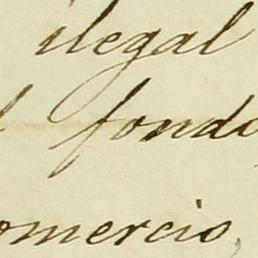 ilegal
l fondo
omercio,